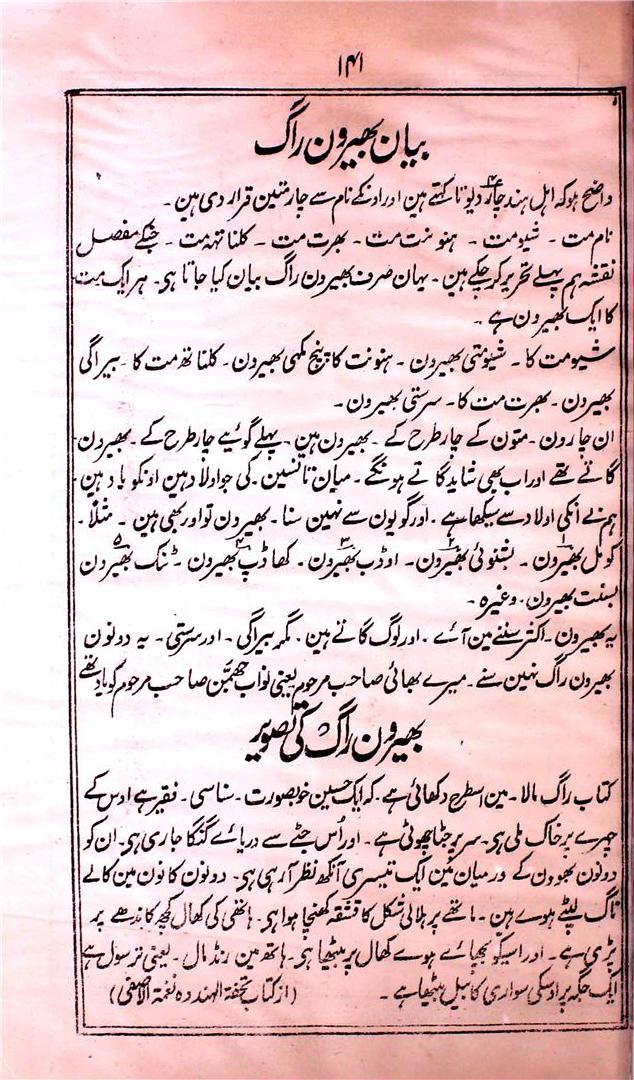 ۱۴۱
بیان بھیرون راگ
واضح ہو کہ اہل ہند چار دیوتا کہتے ہین اور اونکے نام سے چار متین قرار دی ہین۔
نام مت۔ شیو مت۔ ہنونت مت۔ بھرت مت۔ کلناتہہ مت۔ جنکے مفصل
نقشہ ہم پہلے تحریر کر چکے ہین۔ یہان صرف بھیرون راگ بیان کیا جاتا ہی۔ ہر ایک مت
کا ایک بھیرون ہے۔
شیو مت کا۔ شیومتی بھیرون۔ ہنونت کا پنچ مکھی بھیرون۔ کلناتھ مت کا۔ بیراگی
بھیرون۔ بھرت مت کا۔ سرستی بھیرون۔
ان چارون۔ متون کے چار طرح کے۔ بھیرون ہین۔ پہلے گوئیے چار طرح کے۔ بھیرون
گاتے تھے اور اب بھی شاید گاتے ہونگے۔ میان تانسین۔ کی جو اولاد ہین اونکو یاد ہین
ہم نے انکی اولاد سے سیکھا ہے۔ اور گویون سے نہین سنا۔ بھیرون تو اور بھی ہین۔ مثلاً۔
کومل بھیرون۔ بشنوئی بھیرون۔ اوڈب بھیرون۔ کھاڈب بھیرون۔ ٹنک بھیرون
بسنت بھیرون۔ وغیرہ۔
یہ بھیرون۔ اکثر سننے مین آئے۔ اور لوگ گاتے ہین۔ مگر بیراگی۔ اور سرستی۔ یہ دونون
بھیرون راگ نہین سنے۔ میرے بھائی صاحب مرحوم یعنی نواب چھمّن صاحب مرحوم کو یاد تھے
بھیرون راگ کی تصویر
کتاب راگ مالا۔ مین اسطرح دکھائی ہے۔ کہ ایک حسین خوبصورت۔ سناسی۔ فقیر ہے اوس کے
چہرے پر خاک ملی ہی۔ سر پر جٹا چھوٹی ہے۔ اور اُس جٹے سے دریائے گنگا جاری ہی۔ ان کو
دونون بھوون کے درمیان مین ایک تیسری آنکھ نظر آ رہی ہی۔ دونون کانون مین کالے
ناگ لپٹے ہوے ہین۔ ماتھے پر ہلالی شکل کا قشقہ کھنچا ہوا ہی۔ ہاتھی کی کھال کچھ کاندھے پر
پڑی ہے۔ اور اسیکو بچھائے ہوے کھال پر بیٹھا ہی۔ ہاتھ مین رنڈ مال۔ یعنی ترسول ہے
ایک جگہ پر اوسکی سواری کا بیل بیٹھا ہے۔ (از کتاب تحفۃ الہند و نغمۃ الاصفی)